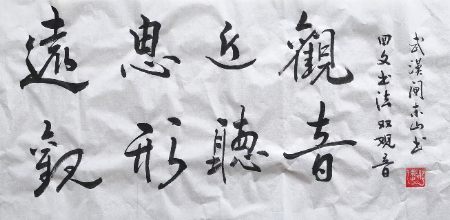 武漢東山书
回文书法双观音
觀音
近聽
思形
遠觀